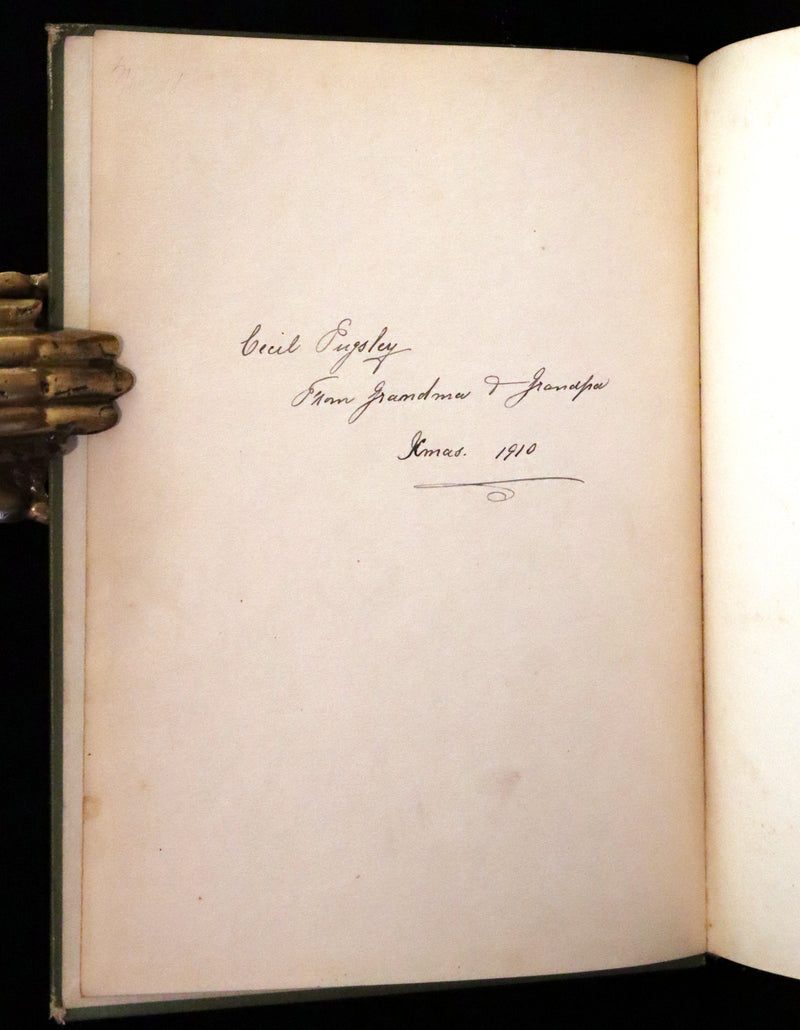 Cecil Pugsley
From Grandma & Grandpa
Xmas. 1910